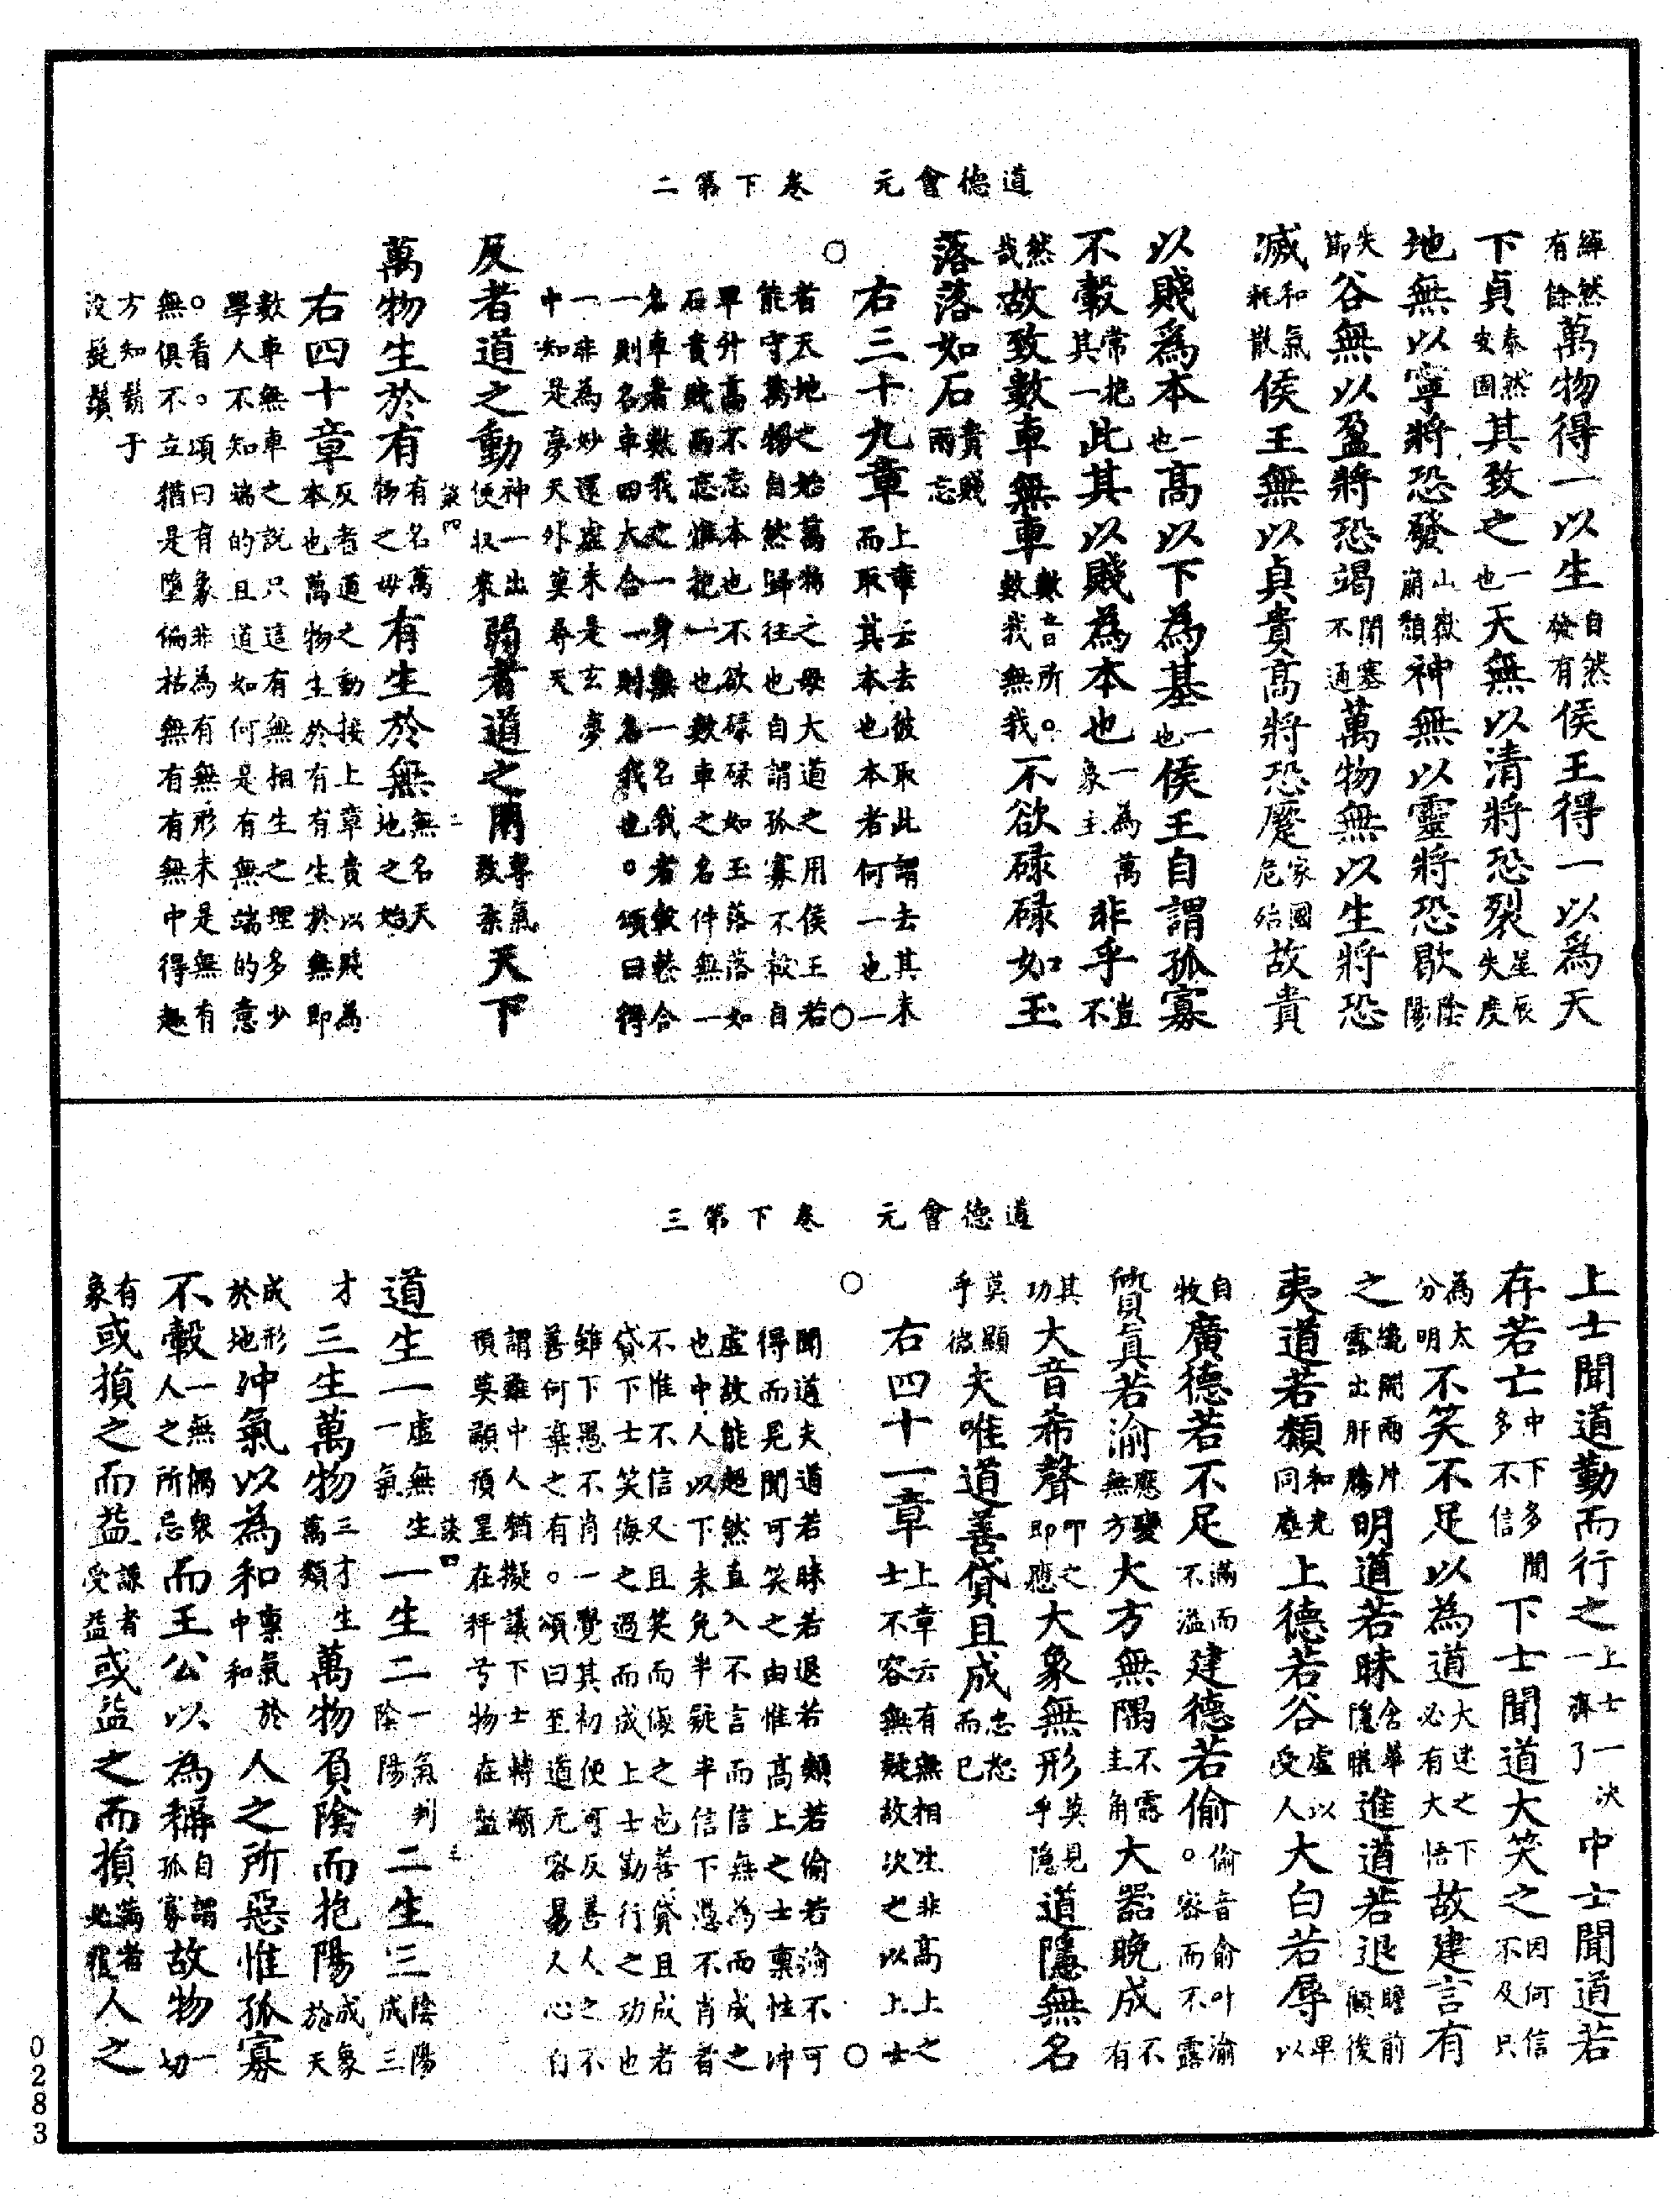 道德會元　卷下第二
綽然有餘萬物得一以生自然發有侯王得一以為天
下貞泰然安固其致之一也天無以清將恐裂星辰失度
地無以寧將恐發山嶽崩頹神無以靈將恐歇陰陽
失節谷無以盈將恐竭閉塞不通萬物無以生將恐
滅和氣耗散侯王無以貞貴高將恐蹷家國危殆故貴
以賤爲本一也高以下為基一也侯王自謂孤寡
不穀常抱其一此其以賤為本也一為萬象主非乎豈不
然哉故致數車無車數音所。數我無我不欲碌碌如玉
落落如石貴賤兩忘
○右三十九章上章云去彼取此謂去其末而取其本也本者何一也○一
者天地之始萬物之母大道之用侯王若
能守萬物自然歸往也自謂孤寡不穀自
卑升高不忘本也不欲碌碌如玉落落如
石貴賤兩忘惟抱一也數車之名件無一
名車者數我之一身無一名我者數輳合
一則名車四大合一則名我也。頌曰得
一非為妙還虛未是玄夢
中知是夢天外莫尋天
反者道之動神一出便収來弱者道之用專氣致柔天下
談四　二
萬物生於有有名萬物之母有生於無無名天地之始
右四十章反者道之動接上章貴以賤為本也萬物生於有有生於無即
數車無車之說只這有無相生之理多少
學人不知端的且道如何是有無端的意
。看。頌曰有象非為有無形未是無有
無俱不立猶是墮偏枯無有有無中得趣
方知鬍子
沒髭鬚
道德會元　卷下第三
上士聞道勤而行之上士一決一齊了中士聞道若
存若亡中下多聞多不信下士聞道大笑之因何信不及只
為太分明不笑不足以為道大迷之下必有大悟故建言有
之纔開兩片露出肝腸明道若昧含華隱曜進道若退瞻前顧後
夷道若類和光同塵上德若谷虛以受人大白若辱卑以
自牧廣德若不足滿而不溢建德若偷偷音俞叶渝。容而不露
質真若渝應變無方大方無隅不露圭角大器晚成不有
其功大音希聲叩之即應大象無形莫見乎隱道隱無名
莫顯乎微夫唯道善貸且成忠恕而已
○右四十一章上章云有無相生非高上之士不容無疑故次之以上士○
聞道夫道若昧若退若類若偷若渝不可
得而見聞可笑之由惟高上之士稟性沖
虛故能超然直入不言而信無為而成之
也中人以下未免半疑半信下愚不肖者
不惟不信又且笑而侮之也善貸且成者
貸下士笑侮之過而成上士勤行之功也
雖下愚不肖一覺其初便可反善人之不
善何棄之有。頌曰至道元容易人心自
謂難中人猶擬議下士轉顢
頇莫顯頇星在秤兮物在盤
談四　三
道生一虛無生一氣一生二一氣判陰陽二生三陰陽成三
才三生萬物三才生萬類萬物負陰而抱陽成象於天
成形於地沖氣以為和稟氣於中和人之所惡惟孤寡
不穀一無偶衆人之所忌而王公以為稱自謂孤寡故物一切
有象或損之而益謙者受益或益之而損滿者必覆人之
0283